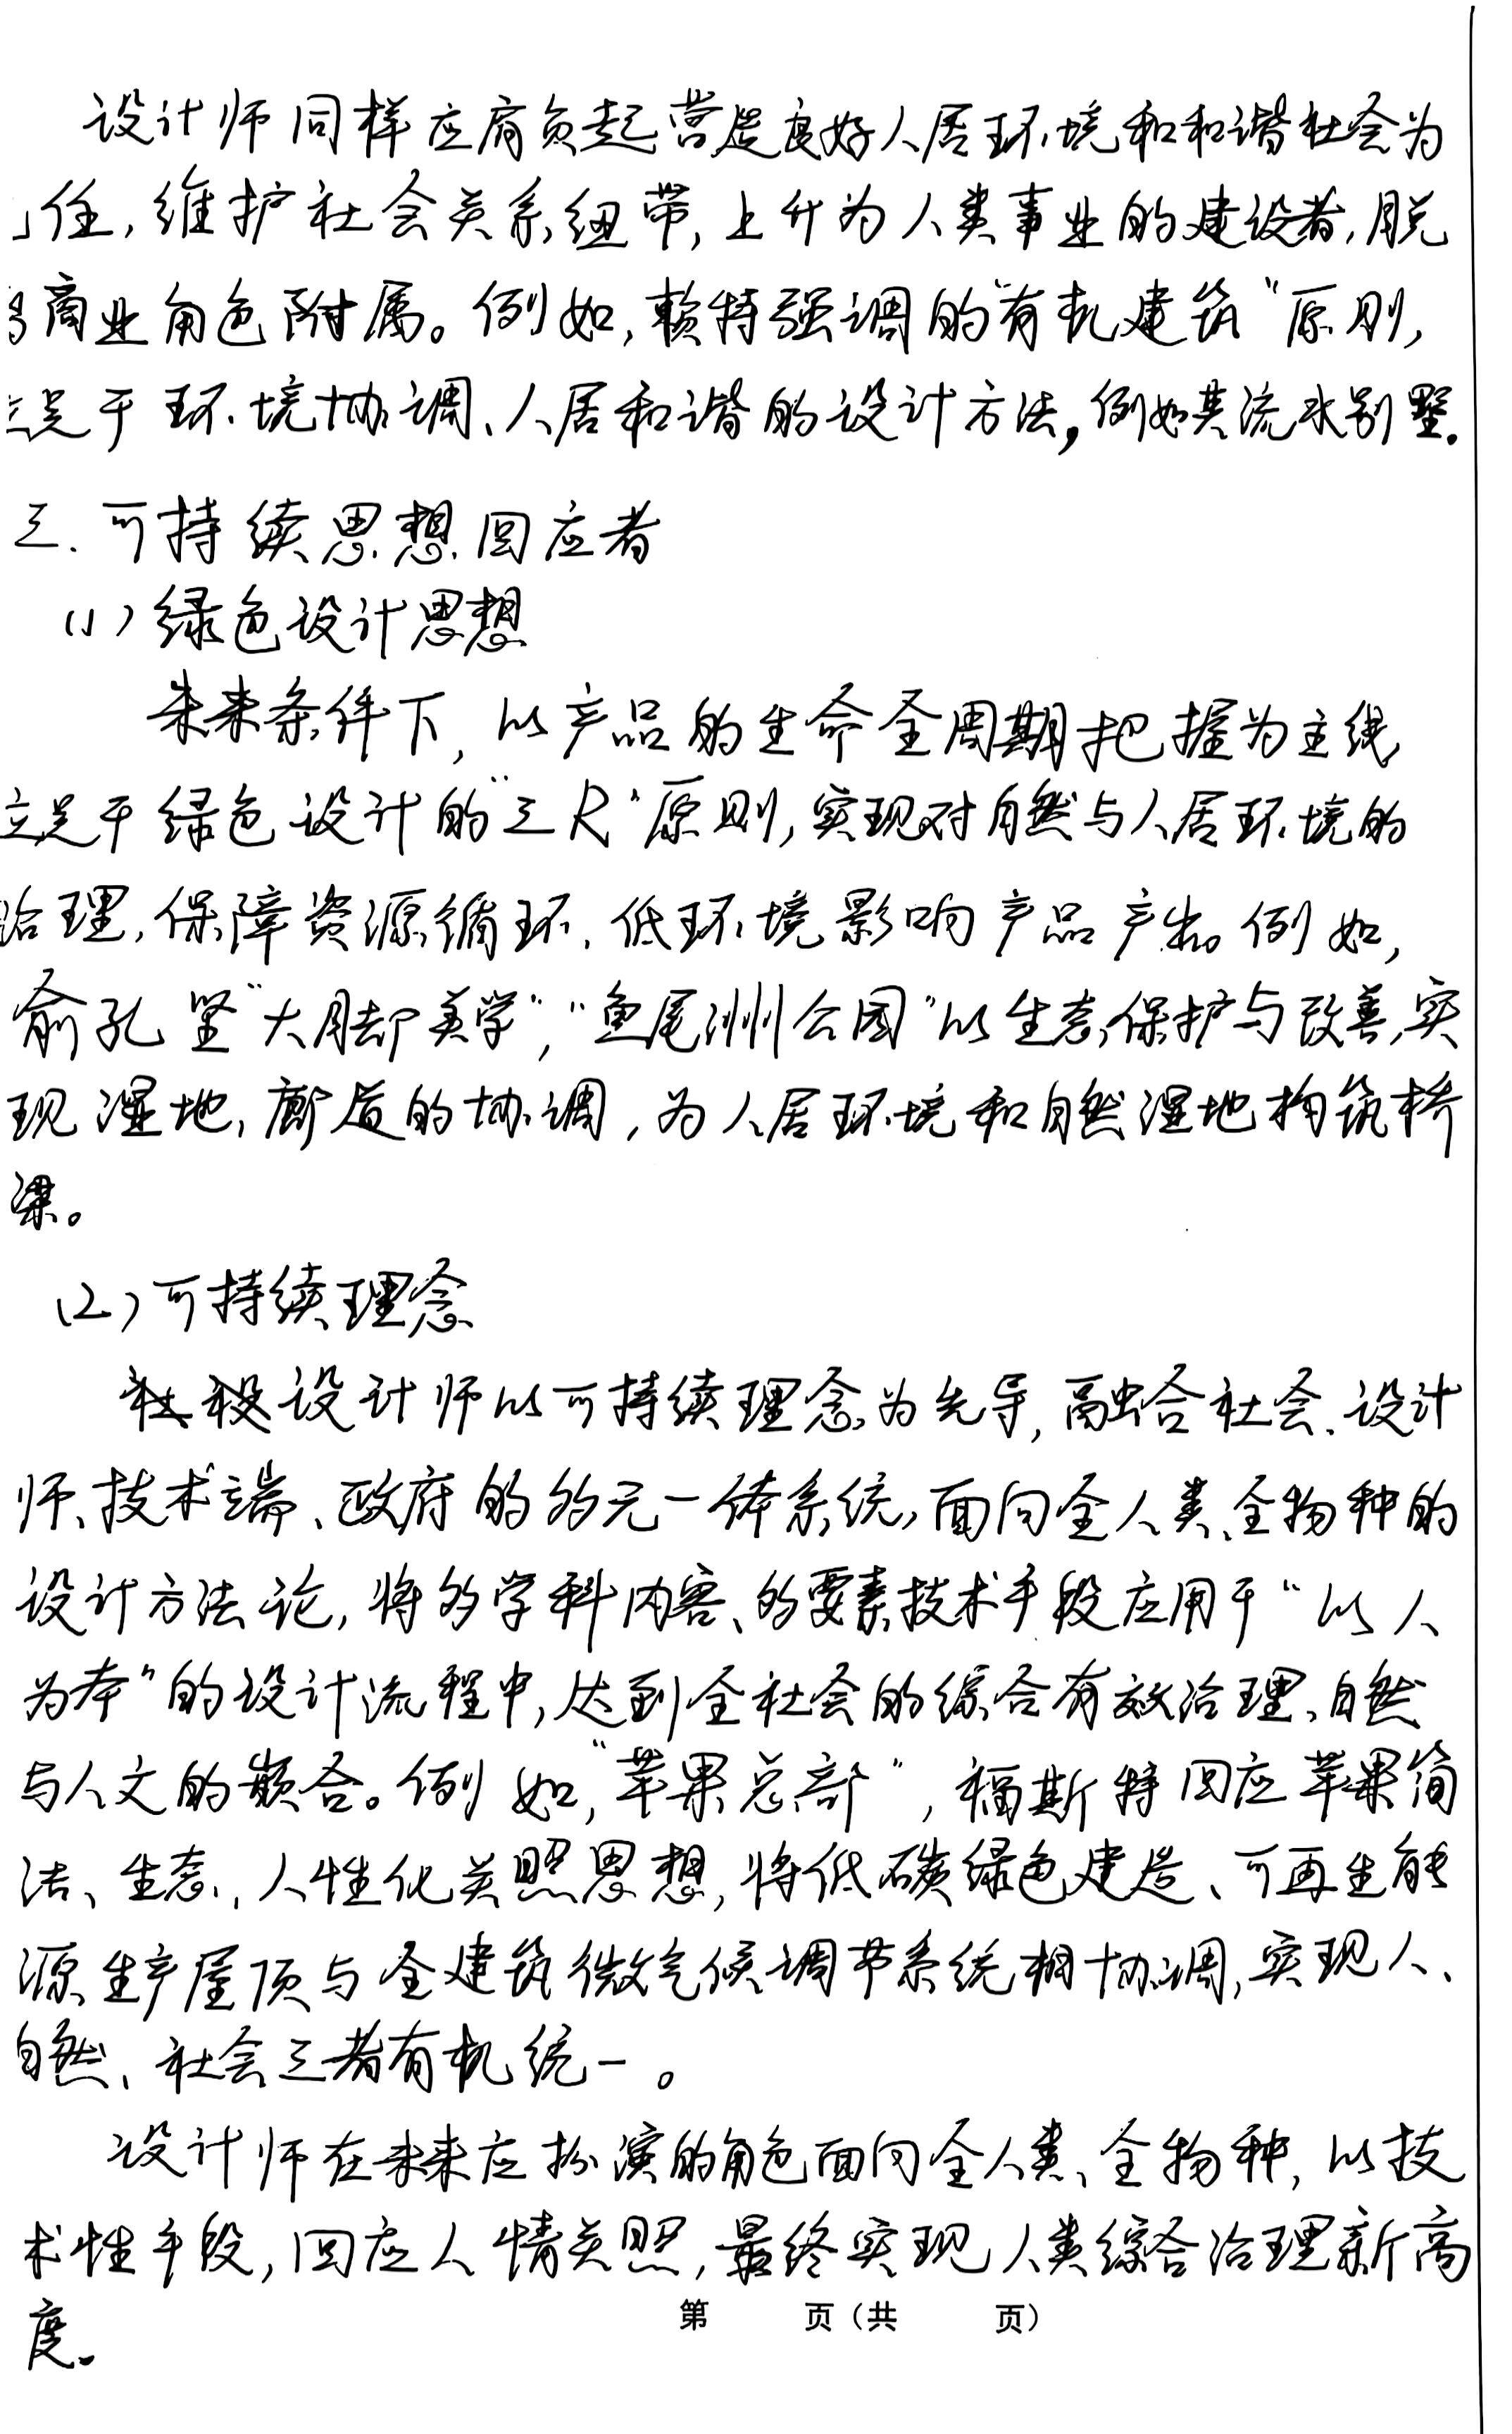 设计师同样应肩负起营造良好人居环境和和谐社会为
任,维护社会关系纽带,上升为人类事业的建设者,脱
商业角色附属。例如,赖特强调的"有机建筑"原则,
立足于环境协调、人居和谐的设计方法,例如其流水别墅。
三.可持续思想回应者
(1)绿色设计思想
未来条件下,以产品的生命全周期把握为主线,
立足于绿色设计的"三R"原则,实现对自然与人居环境的
治理,保障资源循环、低环境影响产品产出。例如,
俞孔坚"大脚美学","鱼尾洲公园"以生态保护与改善,实
现湿地、廊道的协调,为人居环境和自然湿地构筑桥
梁。
(2)可持续理念
设计师以可持续理念为先导,融合社会、设计
师、技术端、政府的多元一体系统,面向全人类、全物种的
设计方法论,将多学科内容、多要素技术手段应用于"以人
为本"的设计流程中,达到全社会的综合有效治理、自然
与人文的嵌合。例如,"苹果总部",福斯特回应苹果简
洁、生态、人性化关照思想,将低碳绿色建造、可再生能
源生产屋顶与全建筑微气候调节系统相协调,实现人、
自然、社会三者有机统一。
设计师在未来应扮演的角色面向全人类、全物种,以技
术性手段,回应人情关照,最终实现人类综合治理新高
度。
第 页(共 页)